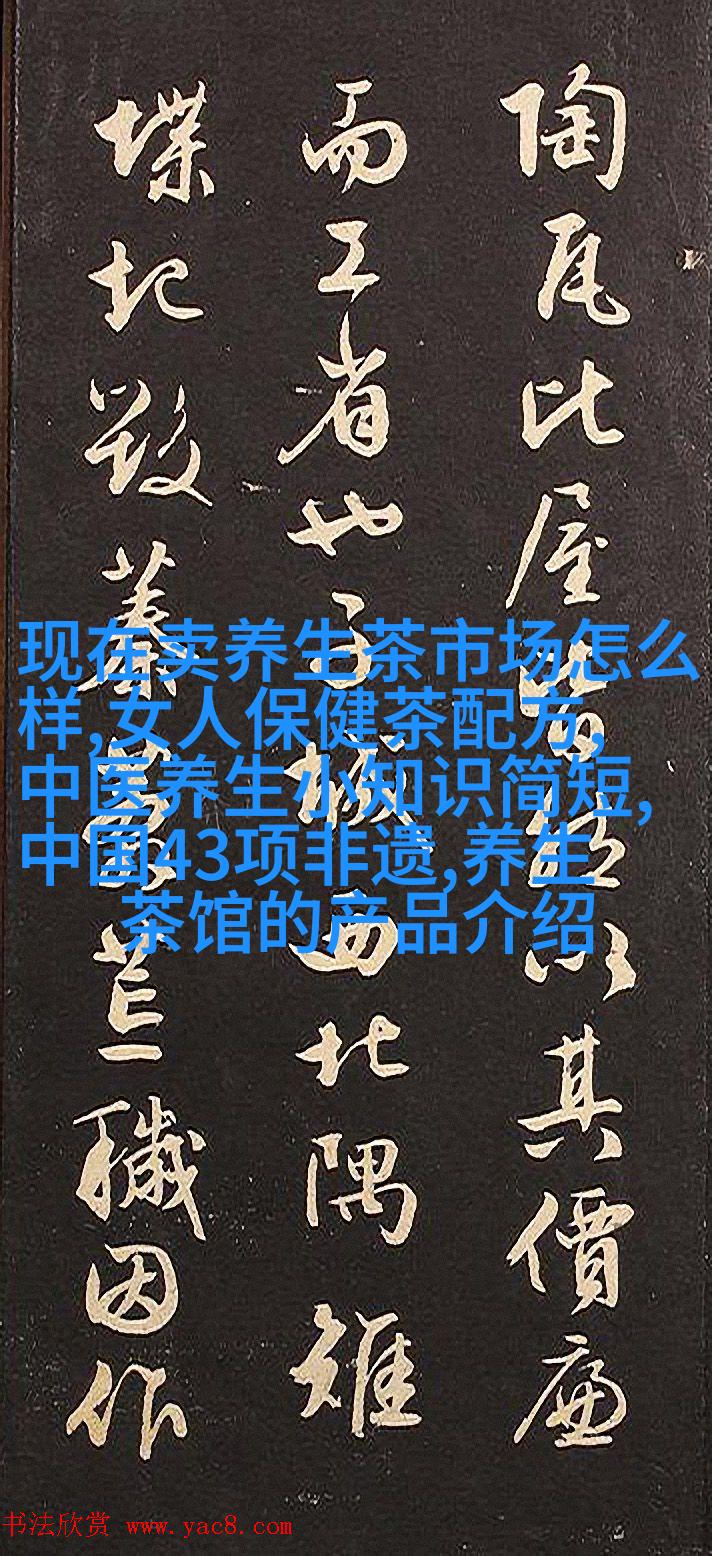 陶瓦比屋皆然以其價廉
而工省也子城西北隅雉
堞圮毀蓁莽荒穢因作
现在卖养生茶市场怎么
样,女人保健茶配方,
中医养生小知识简短,
中国43项非遗,养生
茶馆的产品介绍
书法欣赏 www.yac8.com